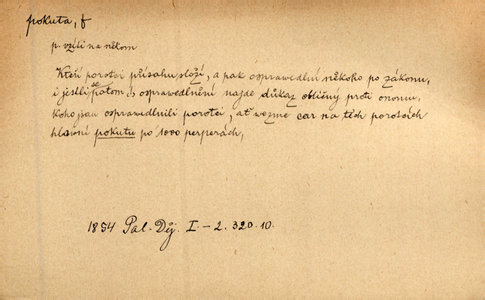 pokuta, f
p. vzíti na někom
Kteří porotci přísahu složí, a pak ospravedlní někoho po zákonu,
i jestli že potom po ospravedlnění najde důkaz obličný proti onomu,
koho jsou ospravedlnili porotci, ať wezme car na těch porotcích
hlavní pokutu po 1000 perperách,
1854 Pal. Děj. I.-2. 320.10.